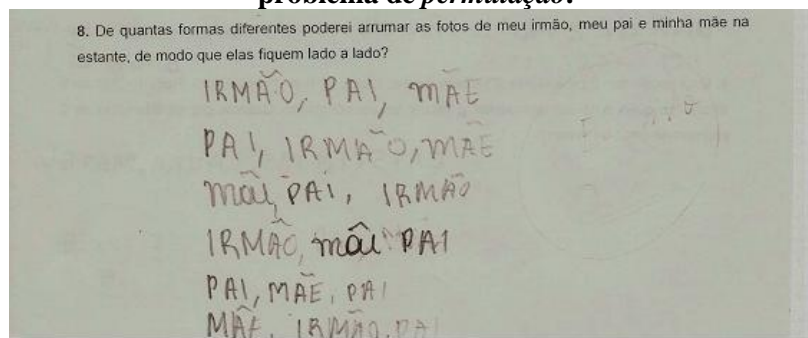 problema de permutação.
8. De quantas formas diferentes poderei arrumar as fotos de meu irmão, meu pai e minha mãe na
estante, de modo que elas fiquem lado a lado?
IRMÃO, PAI, MÃE
PAI, IRMÃO, MÃE
mãi, PAI, IRMÃO
IRMÃO, mãi PAI
PAI, MÃE, PAI
MÃE, IRMÃO, PAI